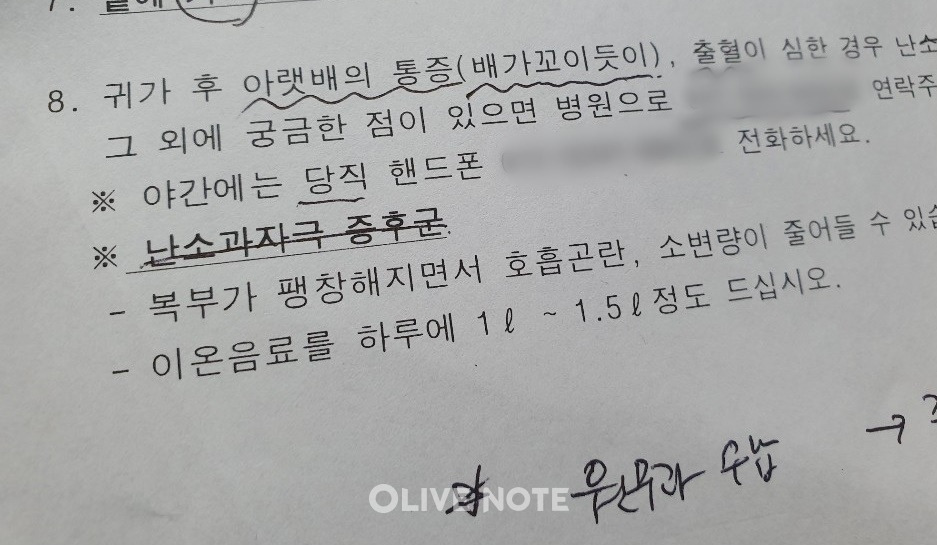 8. 귀가 후 아랫배의 통증(배가꼬이듯이), 출혈이 심한 경우 난소
그 외에 궁금한 점이 있으면 병원으로 연락주
※ 야간에는 당직 핸드폰 전화하세요.
※ 난소과자극 증후군
- 복부가 팽창해지면서 호흡곤란, 소변량이 줄어들 수 있습
- 이온음료를 하루에 1ℓ ~ 1.5ℓ정도 드십시오.
원무과 수납 →
OLIVENOTE